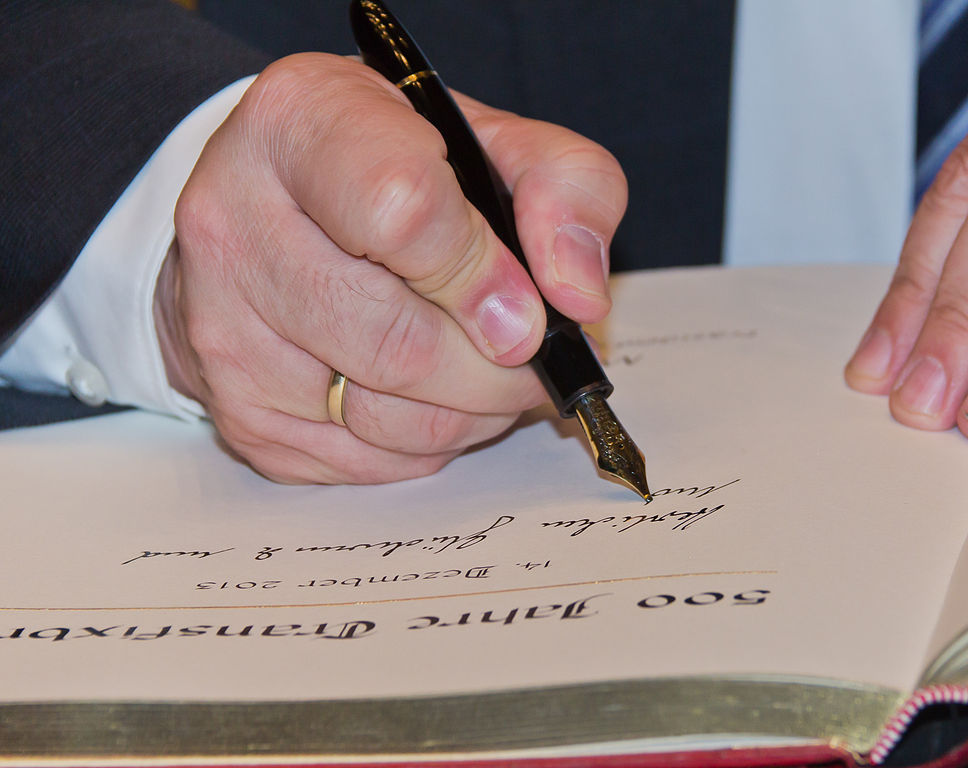 500 Jahre Transfixbr
14. Dezember 2013
Herzlichen Glückwunsch und